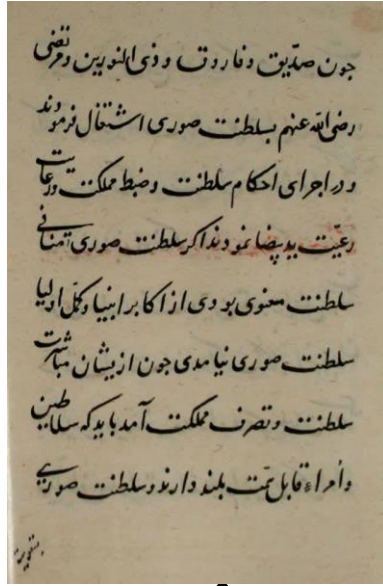 جون صدّیق و فاروق و ذی النورین و مرتضی
رضی الله عنهم بسلطنت صوری اشتغال فرمودند
و در اجرای احکام سلطنت و ضبط مملکت و رعایت
رعیّت ید بیضا نمودند اکر سلطنت صوری منافی
سلطنت معنوی بودی از اکابر انبیا و کمّل اولیا
سلطنت صوری نیامدی جون ازیشان مباشرت
سلطنت و تصرف مملکت آمد باید که سلاطین
و أمراء قابل همّت بلند دارند و سلطنت صوری